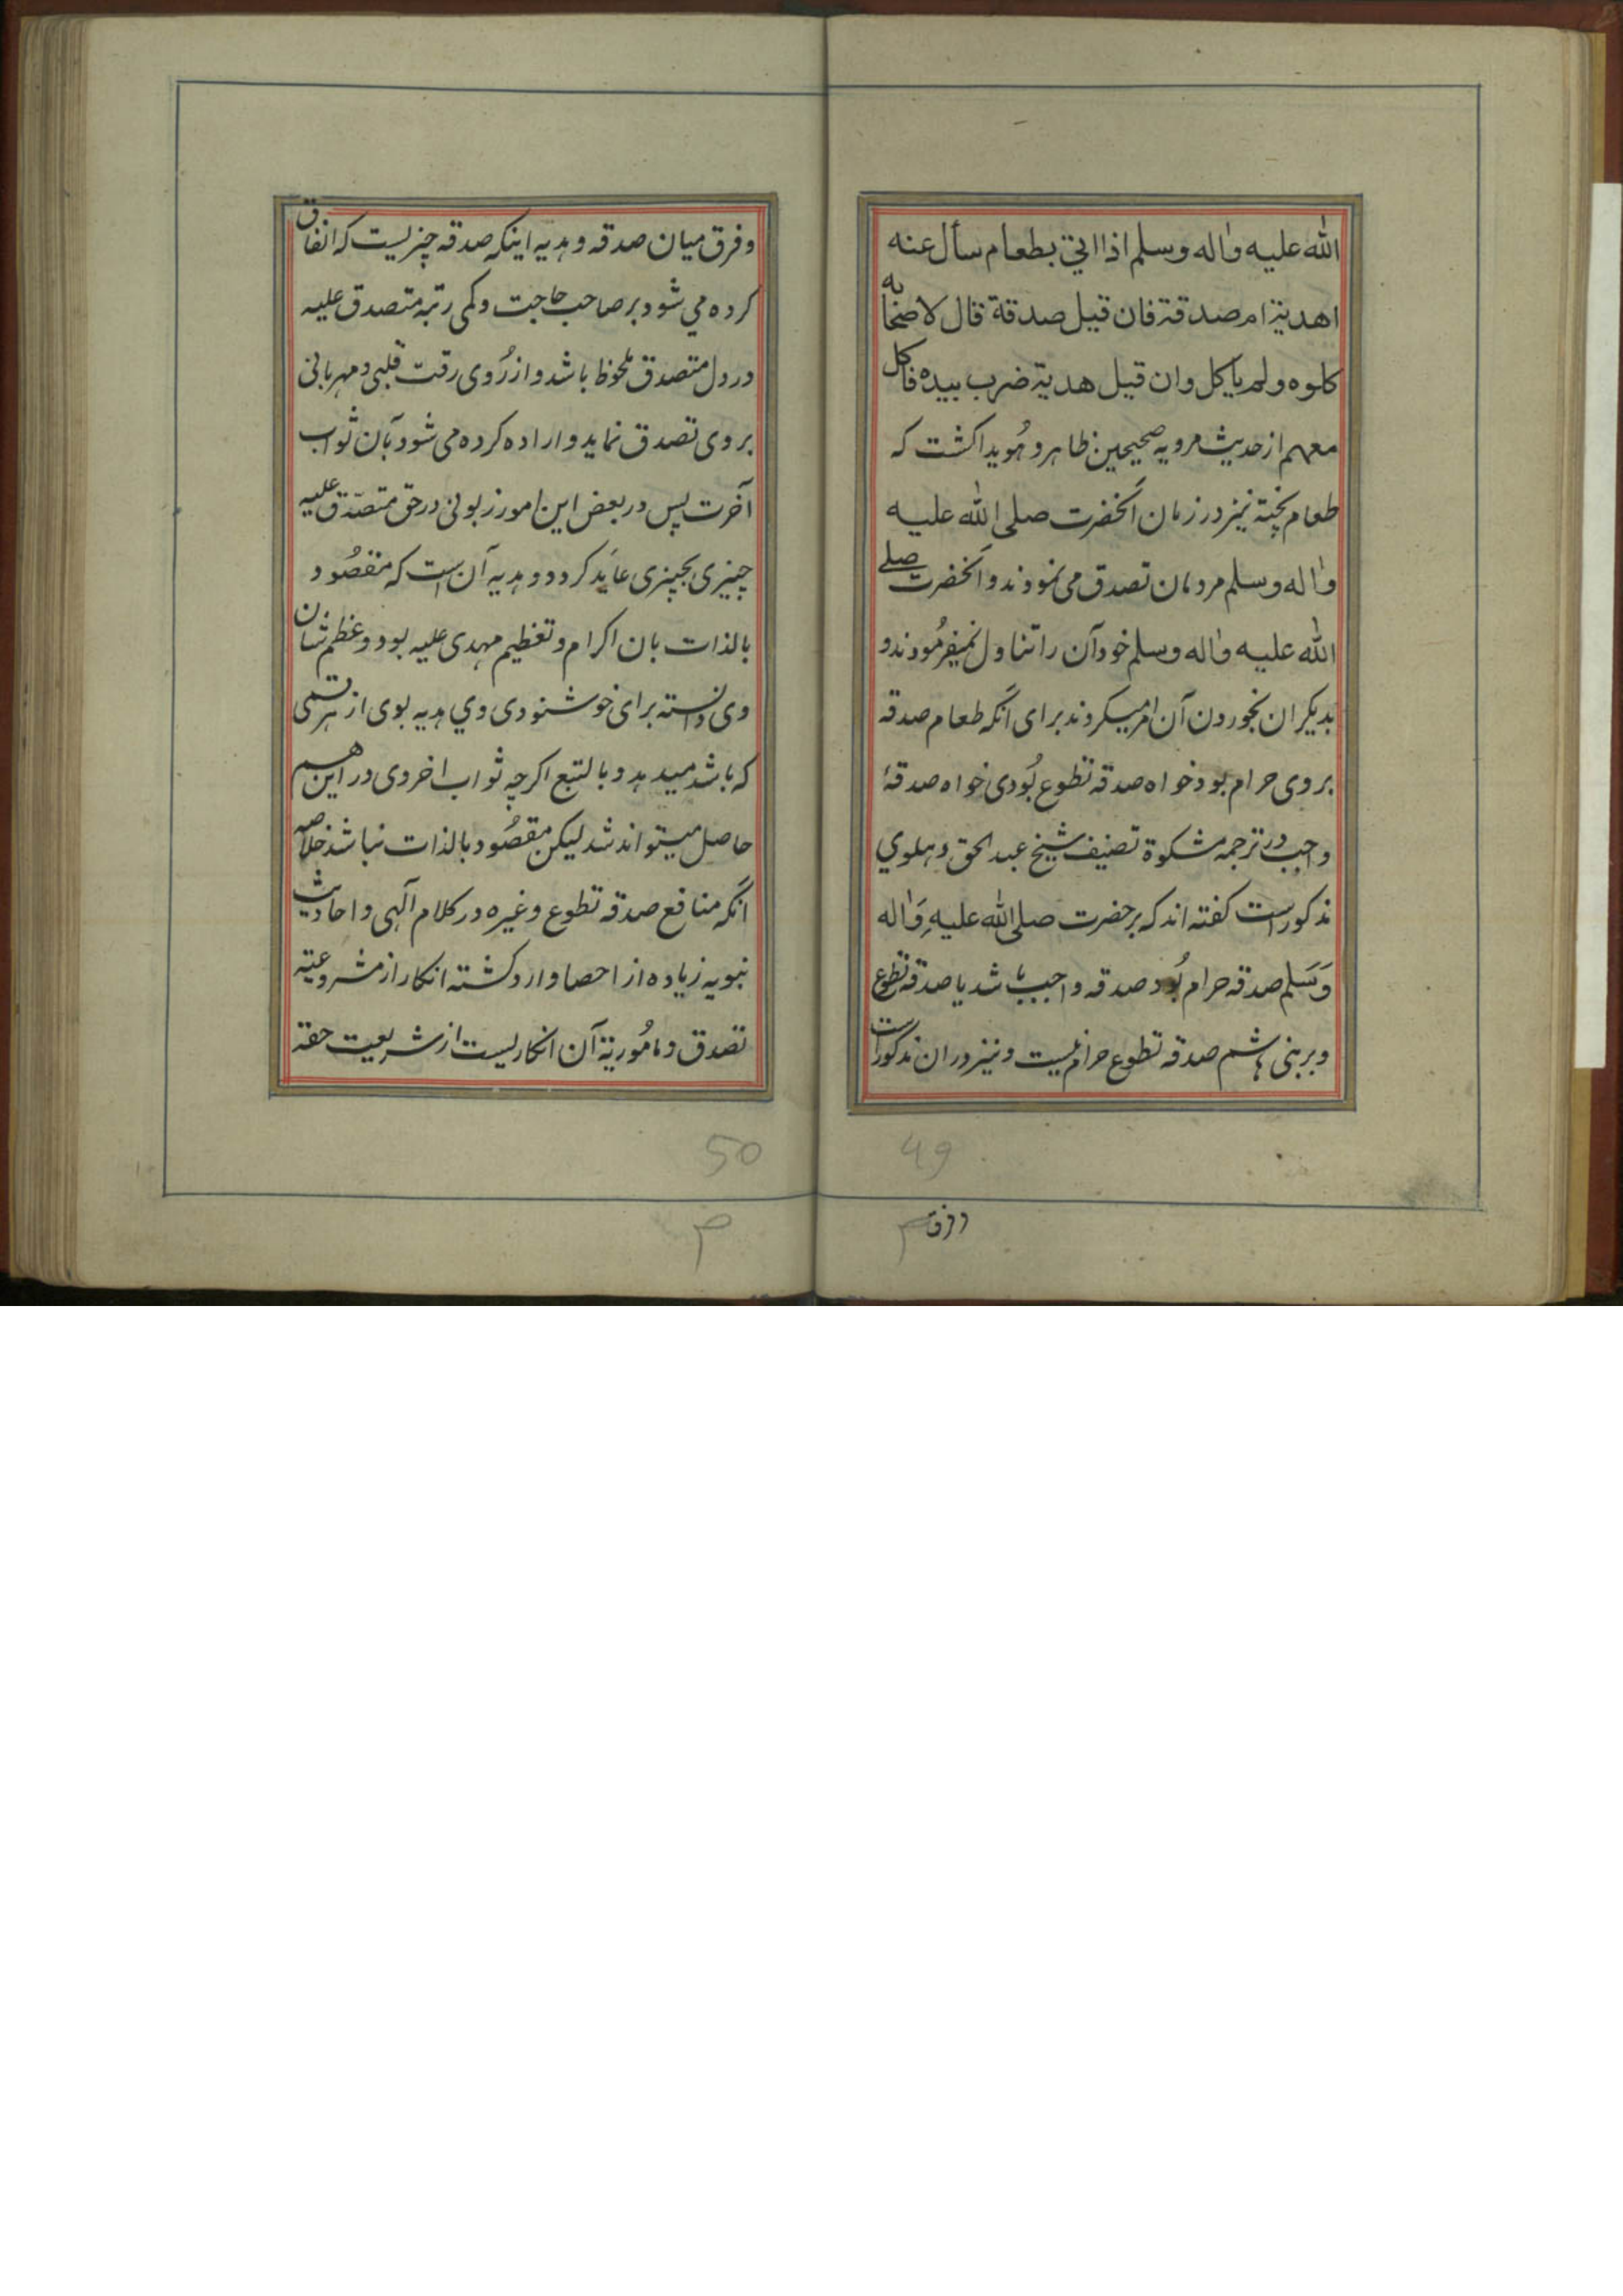 الله عليه واله وسلم اذا اتي بطعام سأل عنه
اهدية ام صدقة فان قيل صدقة قال لاصحابه
كلوه ولم ياكل وان قيل هدية ضرب بيده فاكل
معهم از حدیث مرویه صحیحین ظاهر و هُویدا کشت که
طعام پخته نیز در زمان آنحضرت صلی الله علیه
واله وسلم مردمان تصدق می نمودند و آنحضرت صلے
الله علیه واله وسلم خود آن را تناول نمیفرمُودند و
بدیکران بخوردن آن امر میکردند برای آنکه طعام صدقه
بر وی حرام بود خواه صدقه تطوع بُودی خواه صدقهٔ
واجب در ترجمه مشکوة تصنیف شیخ عبد الحق دهلوي
مذکور است کفته اند که بر حضرت صلی الله علیهِ وَاله
وَسَلم صدقه حرام بُود صدقه واجب باشد یا صدقه تطوع
و بر بنی هاشم صدقه تطوع حرام نیست و نیز دران مذکور است
49
وفرق
و فرق میان صدقه و هدیه اینکه صدقه چیزیست که انفاق
کرده می شود بر صاحب حاجت و کمی رتبه متصدق علیه
در دل متصدق ملحوظ باشد و از رُوی رقت قلبی و مهربانی
بر وی تصدق نماید و اراده کرده می شود بآن ثواب
آخرت پس در بعض این امور زبونی در حق متصدّق علیه
چیزی بچیزی عاید کردد و هدیه آن است که مقصُود
بالذات بان اکرام و تعظیم مهدی علیه بود و عظم شان
وی دانسته برای خوشنودی وي هدیه بوی از هر قسمی
که باشد میدهد و بالتبع اکرچه ثواب اخروی در این هم
حاصل میتواند شد لیکن مقصُود بالذات نباشد خلاصه
آنکه منافع صدقه تطوع و غیره در کلام آلهی و احادیث
نبویه زیاده از احصا وارد کشته انکار از مشروعیته
تصدق و مامُوریة آن انکاریست از شریعت حقه
50